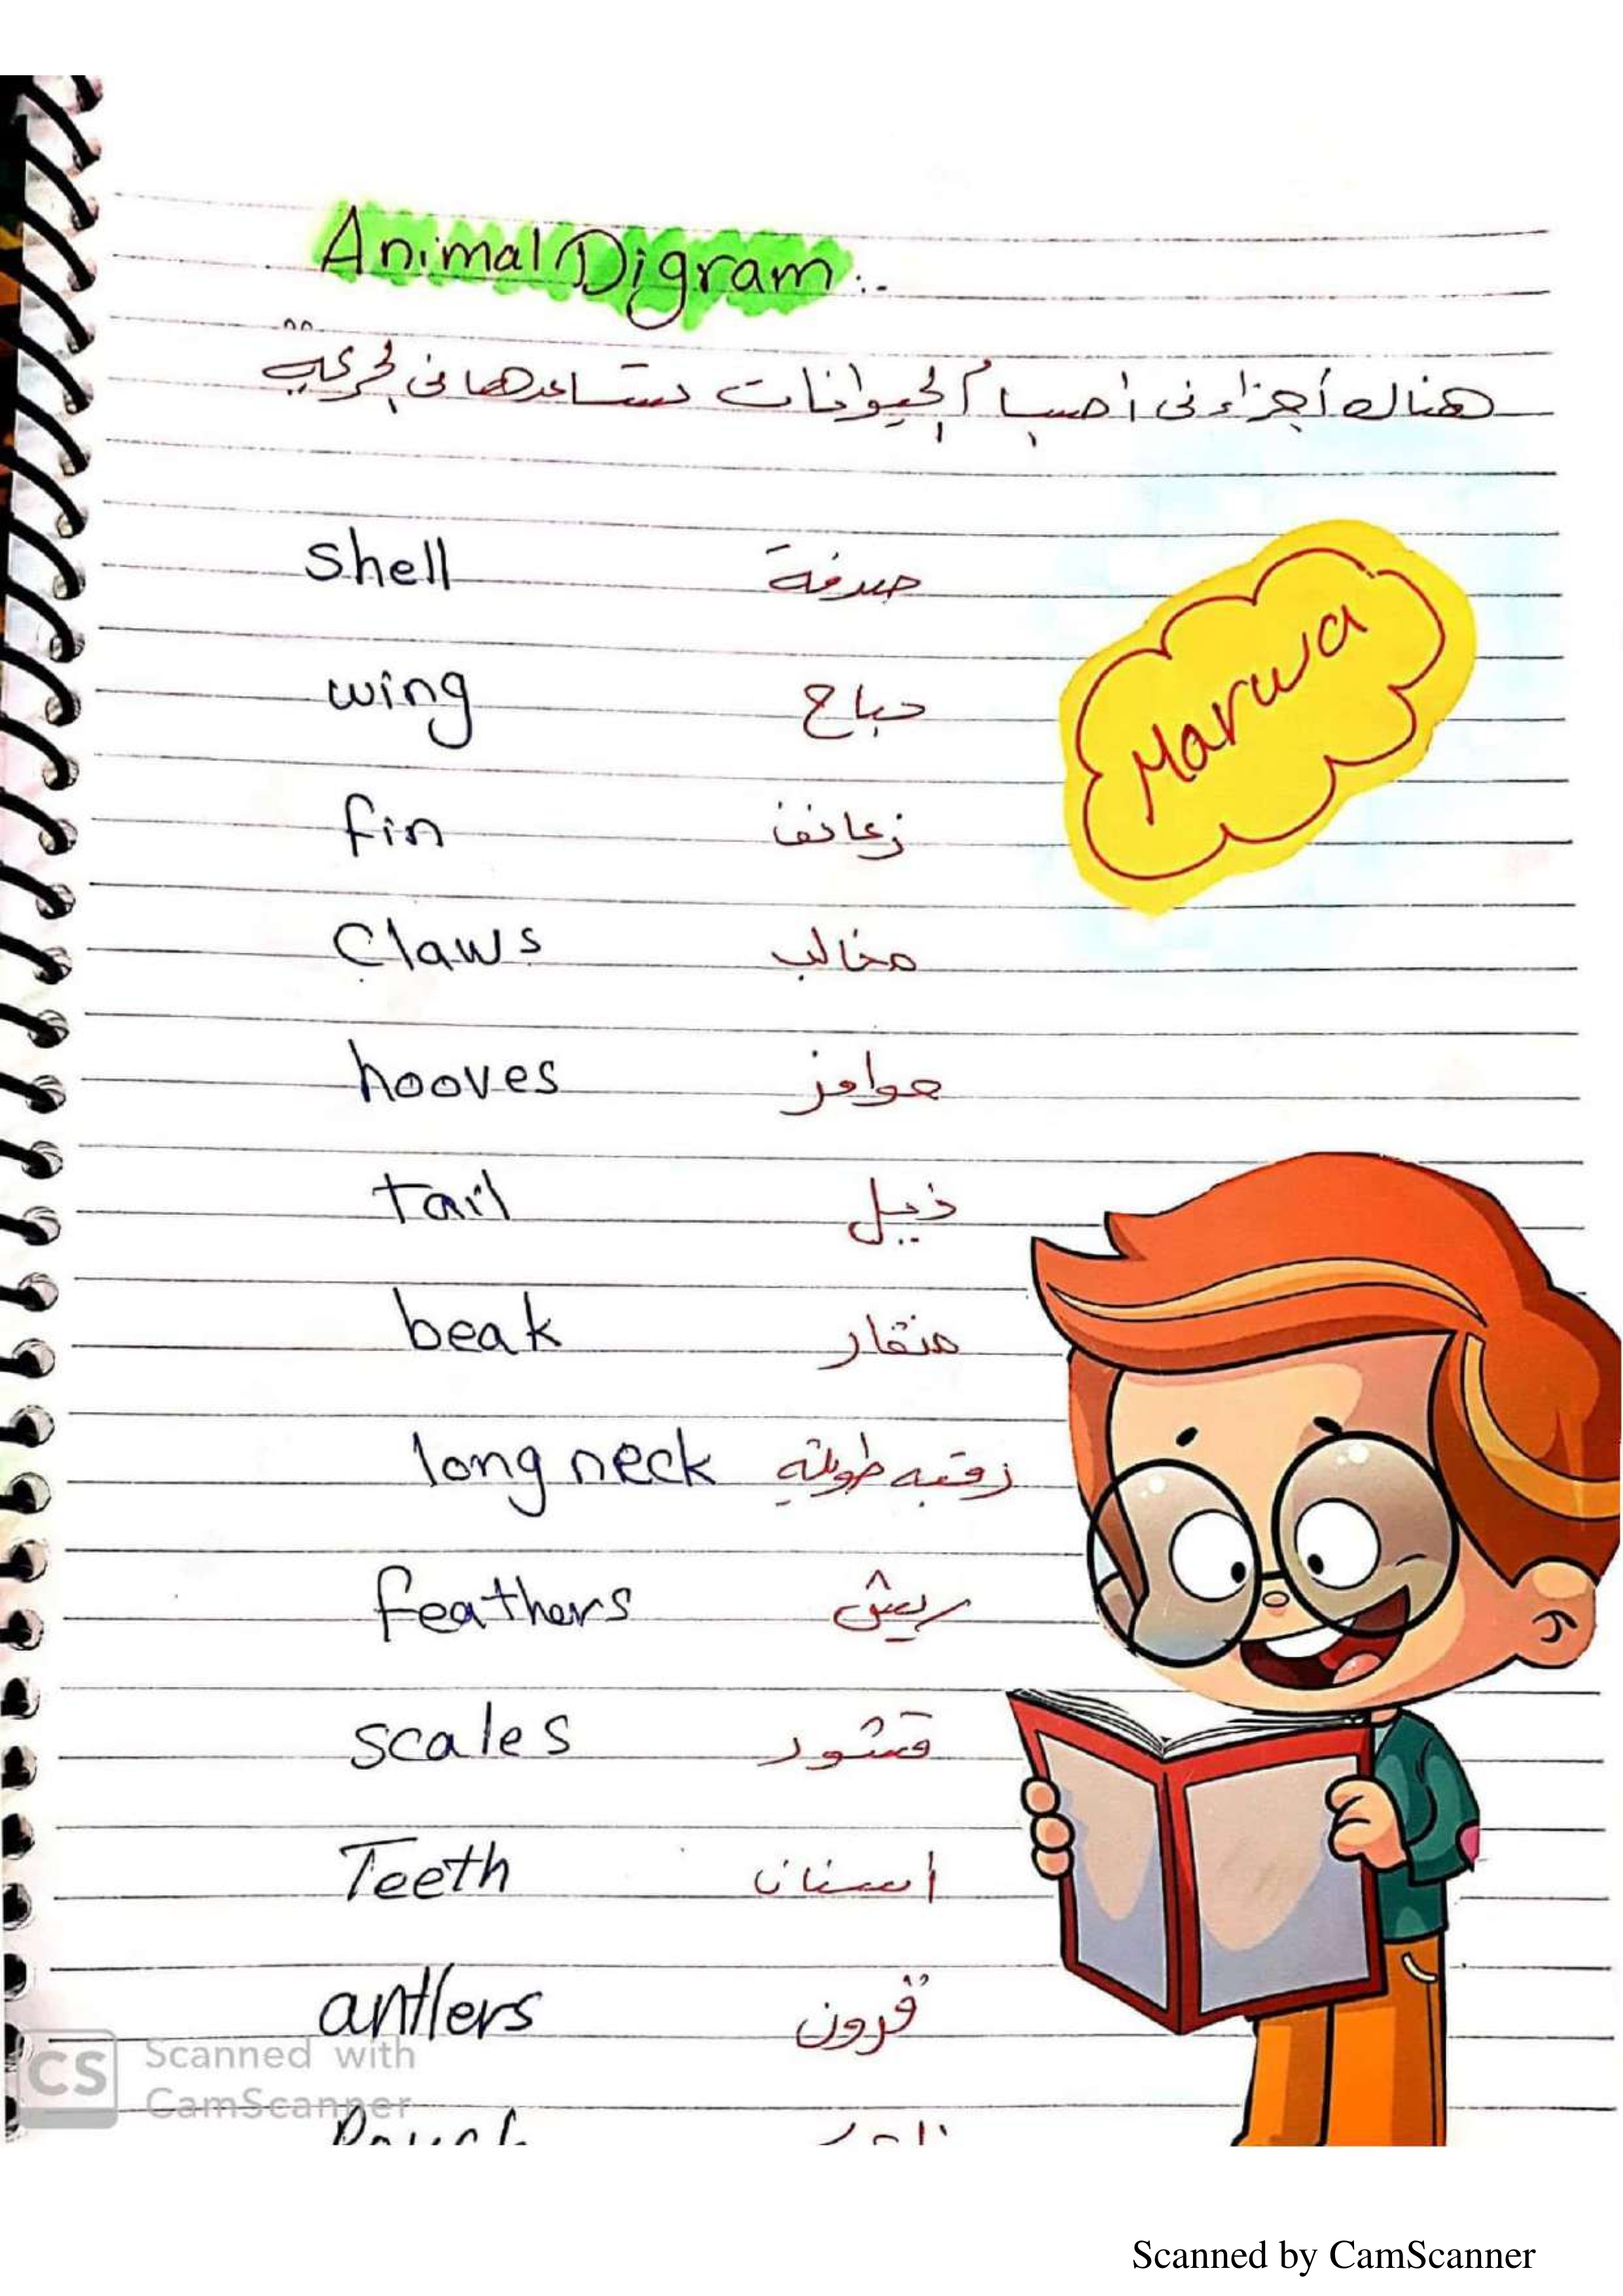 Animal Digram :.
هناك أجزاء في أجسام الحيوانات تساعدها في الحركة
shell صدفة
wing جناح
fin زعانف
Claws مخالب
hooves حوافر
tail ذيل
beak منقار
long neck رقبه طويلة
feathers ريش
scales قشور
Teeth اسنان
antlers قرون
Marwa
CS Scanned with
CamScanner
Scanned by CamScanner